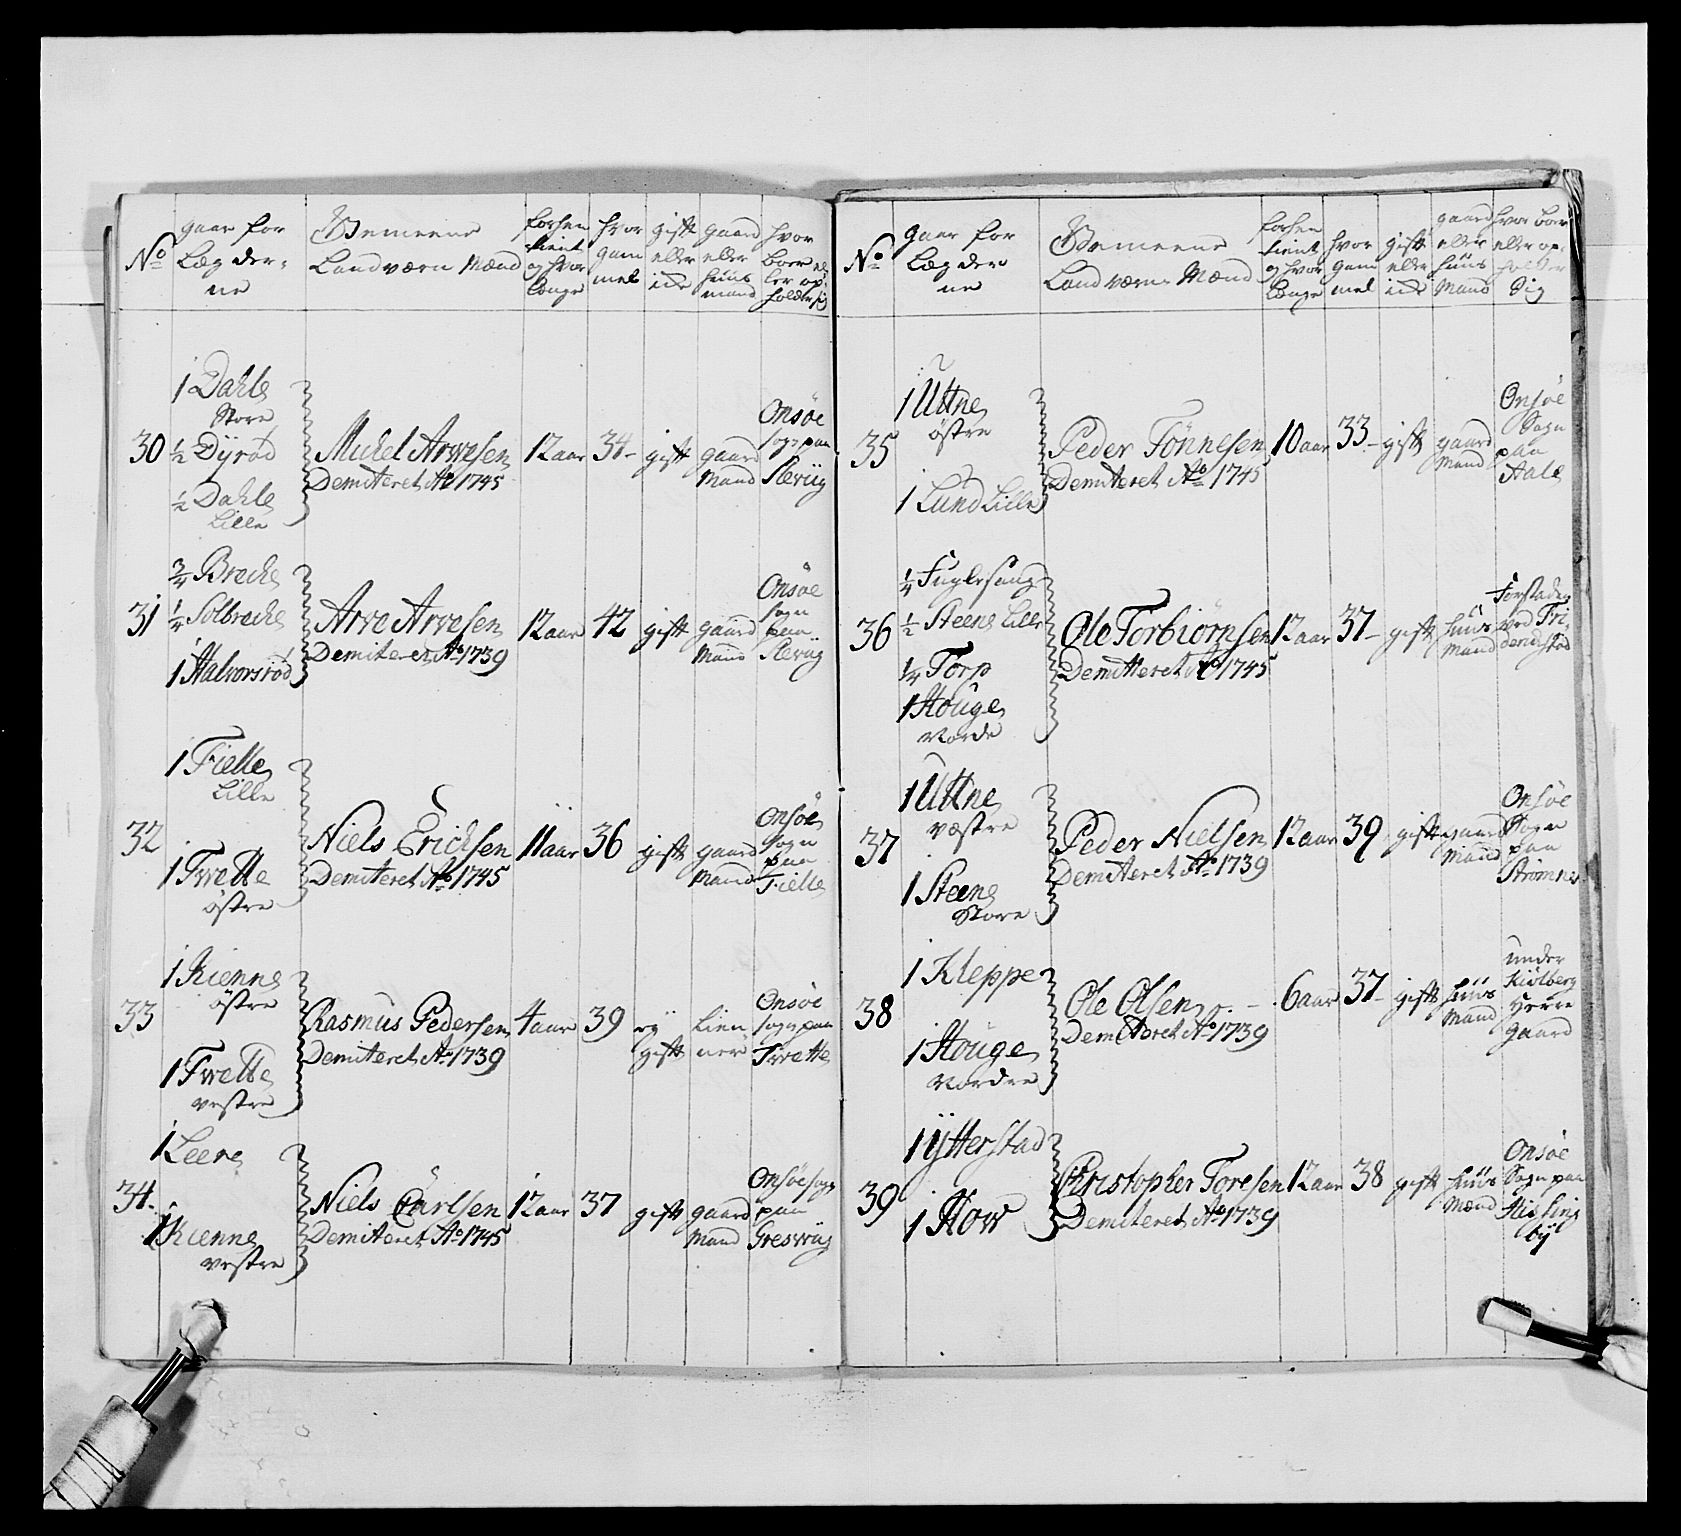 No
gaar for
Læg der-
ne
Gemeene
Landværn Mænd
forhen
tient
og hvor
længe
hvor
gam
mel
gift
eller
ei
gaard
eller
huus
mand
hvor
boer el-
ler op-
holder sig
30
1 Dahle
Store
1/2 Dÿrød
1/2 Dahle
Lille
Michel Arvesen
Demitteret Ao 1745
12 aar
34
gift
gaard
Mand
Onsøe
sogn paa
Slevüg
31
3/4 Brecke
1/4 Solbrecke
1 Halvorsrød
Arve Arvesen
Demitteret Ao 1739
12 aar
42
gift
gaard
Mand
Onsøe
sogn
paa
Slevüg
32
1 Fielle
Lille
1 Tvette
østre
Niels Ericksen
Demitteret Ao 1745
11 aar
36
gift
gaard
Mand
Onsøe
Sogn
paa
Fielle
33
1 Kienne
østre
1 Tvette
vestre
Rasmus Pedersen
Demitteret Ao 1739
4 aar
39
gift
Onsøe
sogn paa
Tvette
34
1 Leere
1 Kienne
vestre
Niels Carlsen
Demitteret Ao 1745
12 aar
37
gift
gaard
Mand
Onsøe sogn
paa
Gresvüg
No
gaar for
Læg der
ne
Gemeene
Landværn Mænd
forhen
tient
og hvor
længe
hvor
gam
mel
gift
eller
ei
gaard
eller
huus
Mand
hvor boer
eller op-
holder
Sig
35
1 Uttne
østre
1 Lund Lille
Peder Tønnesen
Demitteret Ao 1745
10 aar
33
gift
gaard
Mand
Onsøe
Sogn
paa
Aale
36
1/4 Fuglesang
1/2 Steene Lille
1/4 Torp
1 Houge
Nordre
Ole Torbiørnsen
Demitteret Ao 1745
12 aar
37
gift
huus
Mand
Forstaden
ved Fri-
derichstad
37
1 Uttne
væstre
1 Steene
Store
Peder Nielsen
Demitteret Ao 1739
12 aar
39
gift
gaard
Mand
Onsøe
Sogn
paa
Strømnes
38
1 Kleppe
1 Houge
Nordre
Ole Olsen
Demitteret Ao 1739
6 aar
37
gift
huus
Mand
under
Kiølberg
Herre
gaard
39
1 Ÿtterstad
1 How
Christopher Toresen
Demitteret Ao 1739
12 aar
38
gift
huus
Mænd
Onsøe
Sogn paa